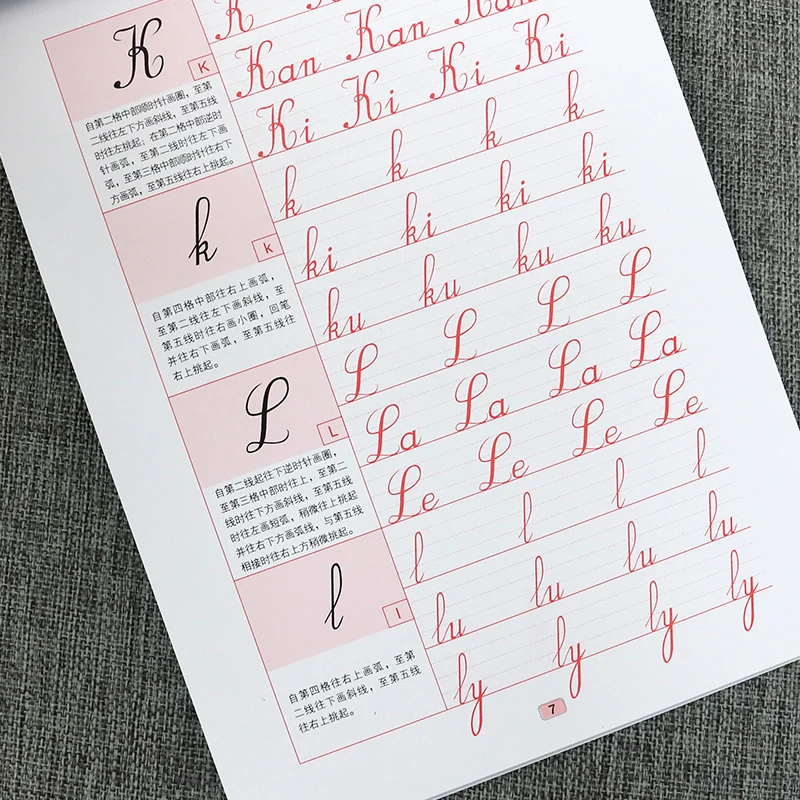 K
K
自第二格中部顺时针画圈，至第
二线往左下方画斜线，至第五线
时往左挑起；在第二格中部逆时
针画弧，至第二线时往左下画
弧，至第三格中部顺时针往右下
方画弧，至第五线往右上挑起。
K
Kan Kan Kan
Ki Ki Ki Ki
k
k
自第四格中部往右上画弧，
至第二线往左下画斜线，至
第五线时往右画小圈，回笔
并往右下画弧，至第五线往
右上挑起。
k k k k
ki ki ki ki
ku ku ku ku
L
L
自第二线起往下逆时针画圈，
至第三格中部时往上，至第二
线时往下方画斜线，至第五线
时往左画短弧，稍微往上挑起
并往右下方画弧线，与第五线
相接时往右上方稍微挑起。
L L L L
La La La La
Le Le Le Le
l
l
自第四格往右上画弧，至第
二线往下画斜线，至第五线
往右上挑起。
l l l l
lu lu lu lu
ly ly ly ly
7